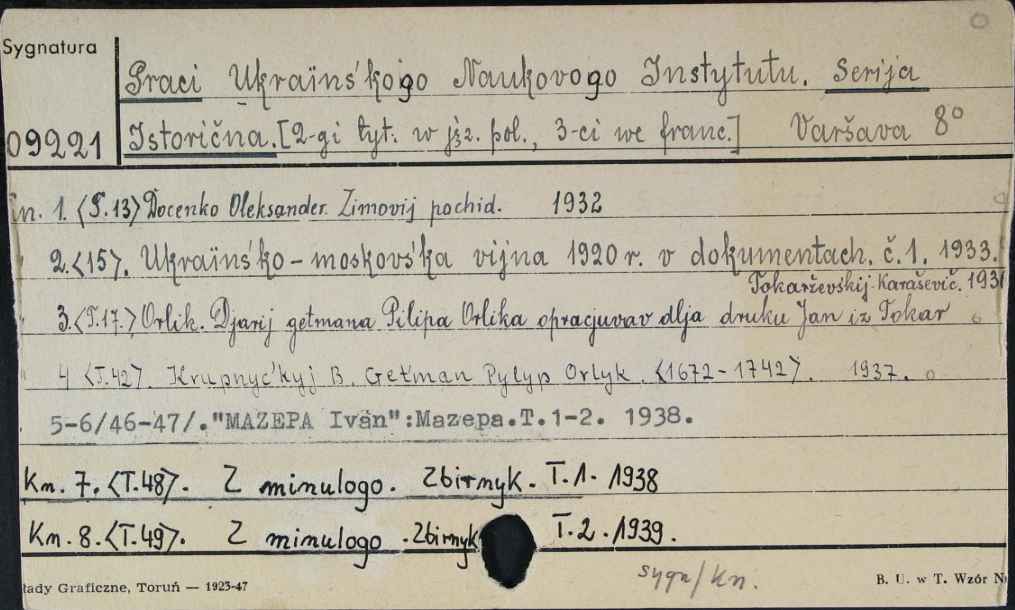 Sygnatura
Praci Ukraïnśkogo Naukovogo Instytutu. Serija
09221 Istorična. [2-gi tyt. w jęz. pol., 3-ci we franc.] Varšava 8°
1. <T.13> Docenko Oleksander. Zimovij pochid. 1932
2. <15>. Ukraïnśko-moskovśka vijna 1920 r. v dokumentach. č. 1. 1933.
Tokarževśkij-Karaševič. 193
3. <T.17.> Orlik. Djarij geťmana Pilipa Orlika opracjuvav dlja druku Jan iz Tokar
4 <T.42>. Krupnyćkyj B. Geťman Pylyp Orlyk. <1672-1742>. 1937.
5-6/46-47/."MAZEPA Ivan":Mazepa.T.1-2. 1938.
Kn. 7. <T.48>. Z minulogo. Zbirnyk. T.1. 1938
Kn. 8. <T.49>. Z minulogo. Zbirnyk T.2. 1939.
sygn/kn.
łady Graficzne, Toruń — 1923-47 B. U. w T. Wzór N